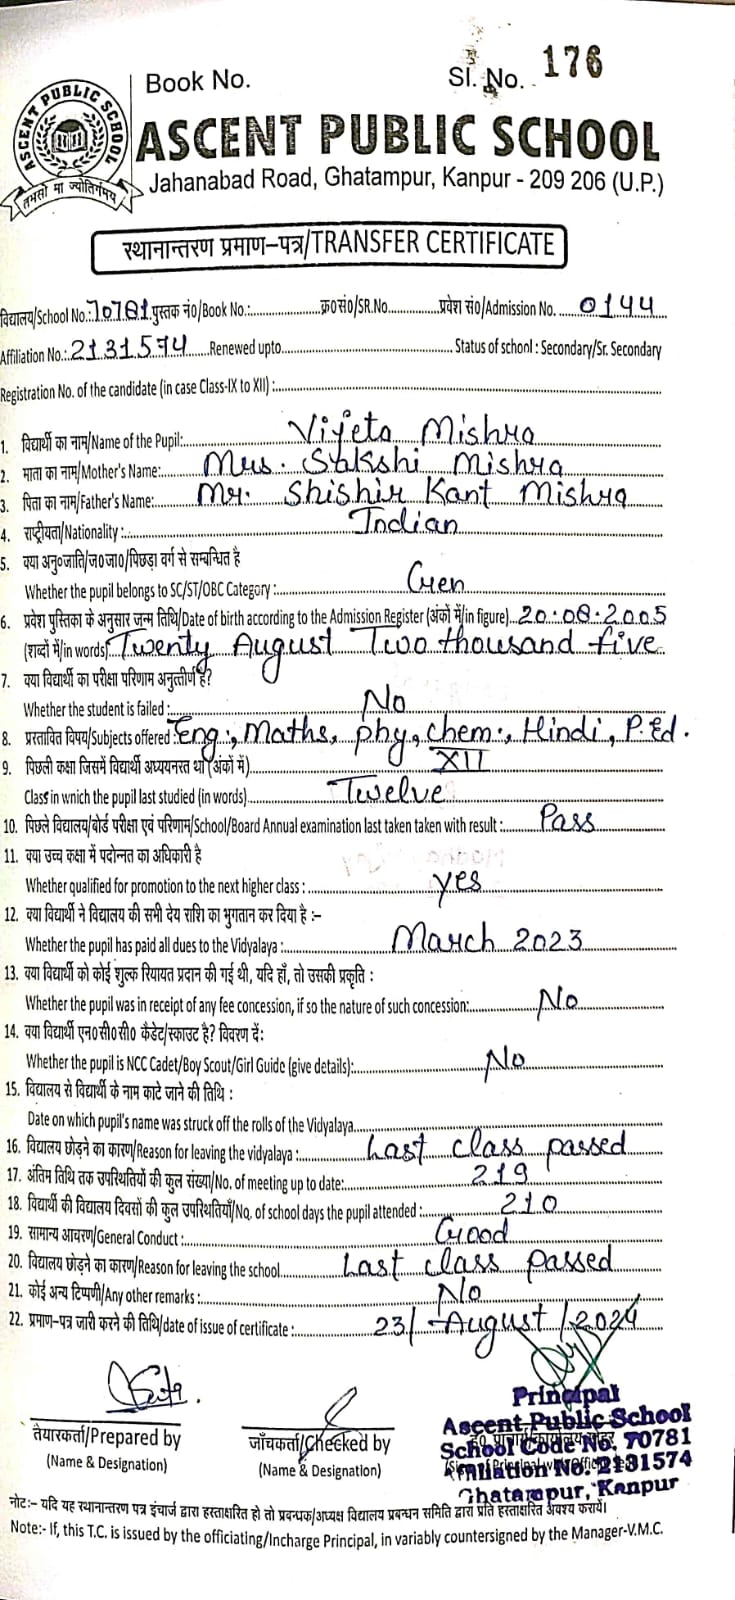 Book No.
Sl. No. 176
ASCENT PUBLIC SCHOOL
तमसो मा ज्योतिर्गमय
ASCENT PUBLIC SCHOOL
Jahanabad Road, Ghatampur, Kanpur - 209 206 (U.P.)
स्थानान्तरण प्रमाण-पत्र/TRANSFER CERTIFICATE
विद्यालय/School No.: 70781 पुस्तक नं०/Book No.: क्र०सं०/SR.No. प्रवेश सं०/Admission No. 0144
Affiliation No.: 2131574 Renewed upto Status of school : Secondary/Sr. Secondary
Registration No. of the candidate (in case Class-IX to XII) :
1. विद्यार्थी का नाम/Name of the Pupil: Vijeta Mishra
2. माता का नाम/Mother's Name: Mrs. Sakshi Mishra
3. पिता का नाम/Father's Name: Mr. Shishir Kant Mishra
4. राष्ट्रीयता/Nationality : Indian
5. क्या अनु०जाति/ज०जा०/पिछड़ा वर्ग से सम्बन्धित है
Whether the pupil belongs to SC/ST/OBC Category : Gen
6. प्रवेश पुस्तिका के अनुसार जन्म तिथि/Date of birth according to the Admission Register (अंकों में/in figure) 20.08.2005
(शब्दों में/in words) Twenty August Two thousand five
7. क्या विद्यार्थी का परीक्षा परिणाम अनुत्तीर्ण है?
Whether the student is failed : No
8. प्रस्तावित विषय/Subjects offered : Eng:, Maths, phy, chem:, Hindi, P.Ed.
9. पिछली कक्षा जिसमें विद्यार्थी अध्ययनरत था (अंकों में) XII
Class in which the pupil last studied (in words) Twelve
10. पिछले विद्यालय/बोर्ड परीक्षा एवं परिणाम/School/Board Annual examination last taken taken with result : Pass
11. क्या उच्च कक्षा में पदोन्नत का अधिकारी है
Whether qualified for promotion to the next higher class : yes
12. क्या विद्यार्थी ने विद्यालय की सभी देय राशि का भुगतान कर दिया है :-
Whether the pupil has paid all dues to the Vidyalaya : March 2023
13. क्या विद्यार्थी को कोई शुल्क रियायत प्रदान की गई थी, यदि हाँ, तो उसकी प्रकृति :
Whether the pupil was in receipt of any fee concession, if so the nature of such concession: No
14. क्या विद्यार्थी एन०सी०सी० कैडेट/स्काउट है? विवरण दें:
Whether the pupil is NCC Cadet/Boy Scout/Girl Guide (give details): No
15. विद्यालय से विद्यार्थी के नाम काटे जाने की तिथि :
Date on which pupil's name was struck off the rolls of the Vidyalaya
16. विद्यालय छोड़ने का कारण/Reason for leaving the vidyalaya : Last class passed
17. अंतिम तिथि तक उपस्थितियों की कुल संख्या/No. of meeting up to date: 219
18. विद्यार्थी की विद्यालय दिवसों की कुल उपस्थितियाँ/No. of school days the pupil attended : 210
19. सामान्य आचरण/General Conduct : Good
20. विद्यालय छोड़ने का कारण/Reason for leaving the school Last class passed
21. कोई अन्य टिप्पणी/Any other remarks : No
22. प्रमाण-पत्र जारी करने की तिथि/date of issue of certificate : 23/August/2024
तैयारकर्ता/Prepared by
(Name & Designation)
जाँचकर्ता/Checked by
(Name & Designation)
Principal
Ascent Public School
School Code No. 70781
Affiliation No. 2131574
Ghatampur, Kanpur
नोट:- यदि यह स्थानान्तरण पत्र इंचार्ज द्वारा हस्ताक्षरित हो तो प्रबन्धक/अध्यक्ष विद्यालय प्रबन्धन समिति द्वारा प्रति हस्ताक्षरित अवश्य करायें।
Note:- If, this T.C. is issued by the officiating/Incharge Principal, in variably countersigned by the Manager-V.M.C.